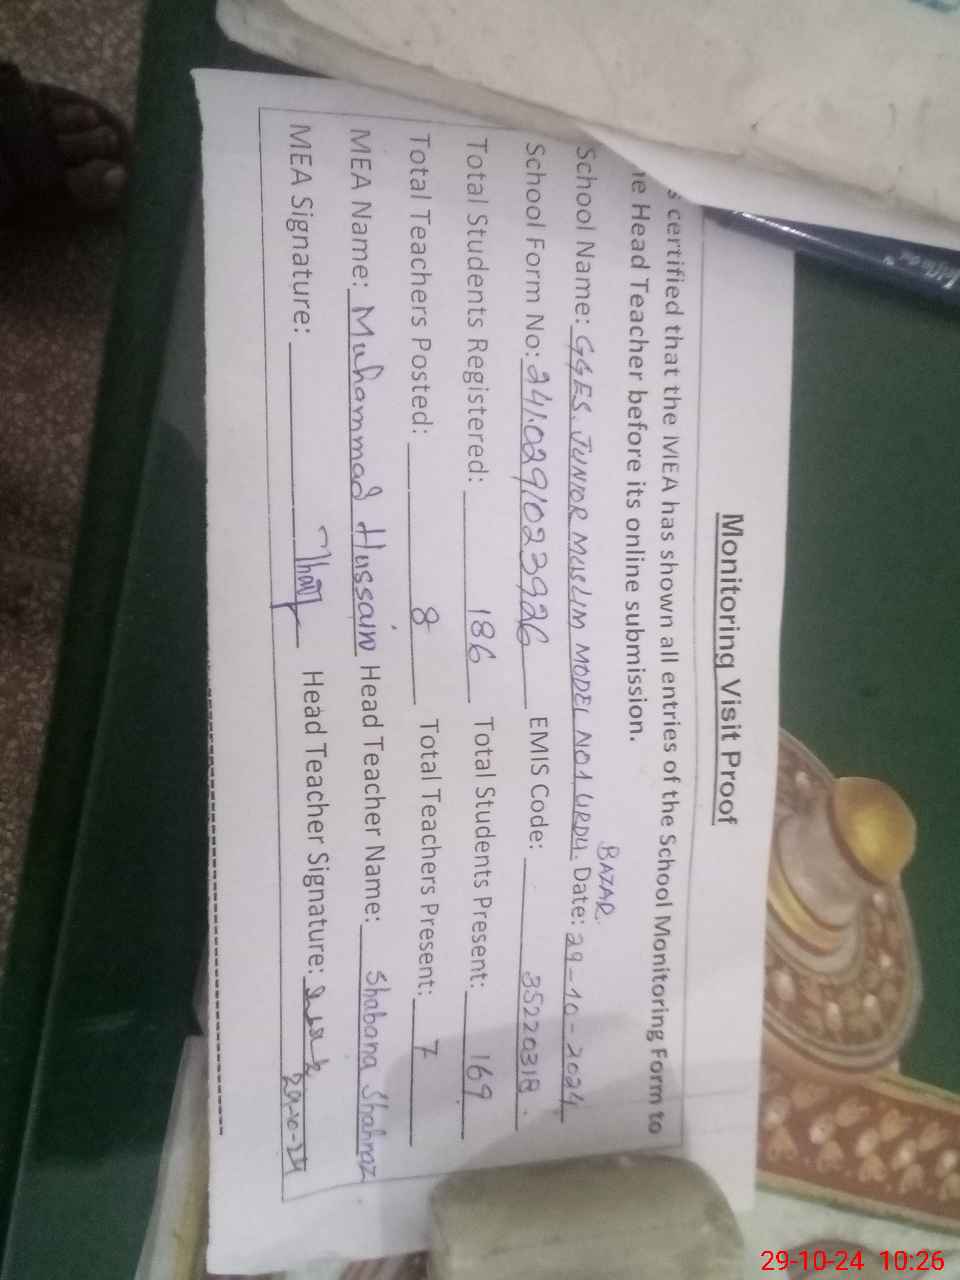 Monitoring Visit Proof
certified that the MEA has shown all entries of the School Monitoring Form to
Head Teacher before its online submission.
School Name: GGES. JUNIOR MUSLIM MODEL NO1 URDU. BAZAR. Date: 29-10-2024
School Form No: EMIS Code: 35220318.
Total Students Registered: 186 Total Students Present: 169
Total Teachers Posted: 8 Total Teachers Present: 7
MEA Name: Muhammad Hussain Head Teacher Name: Shabana Shahnaz
MEA Signature: Head Teacher Signature: 29-10-24
29-10-24 10:26